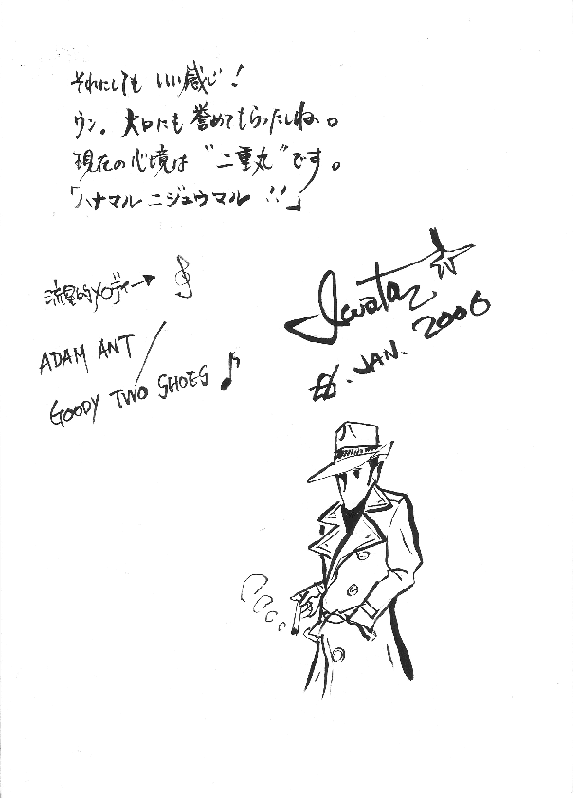 それにしても いい感じ!
ウン。大口にも誉めてもらったしね。
現在の心境は "二重丸" です。
「ハナマル ニジュウマル!!」
流星的メロディー→
ADAM ANT
GOODY TWO SHOES ♪
JAN. 2006